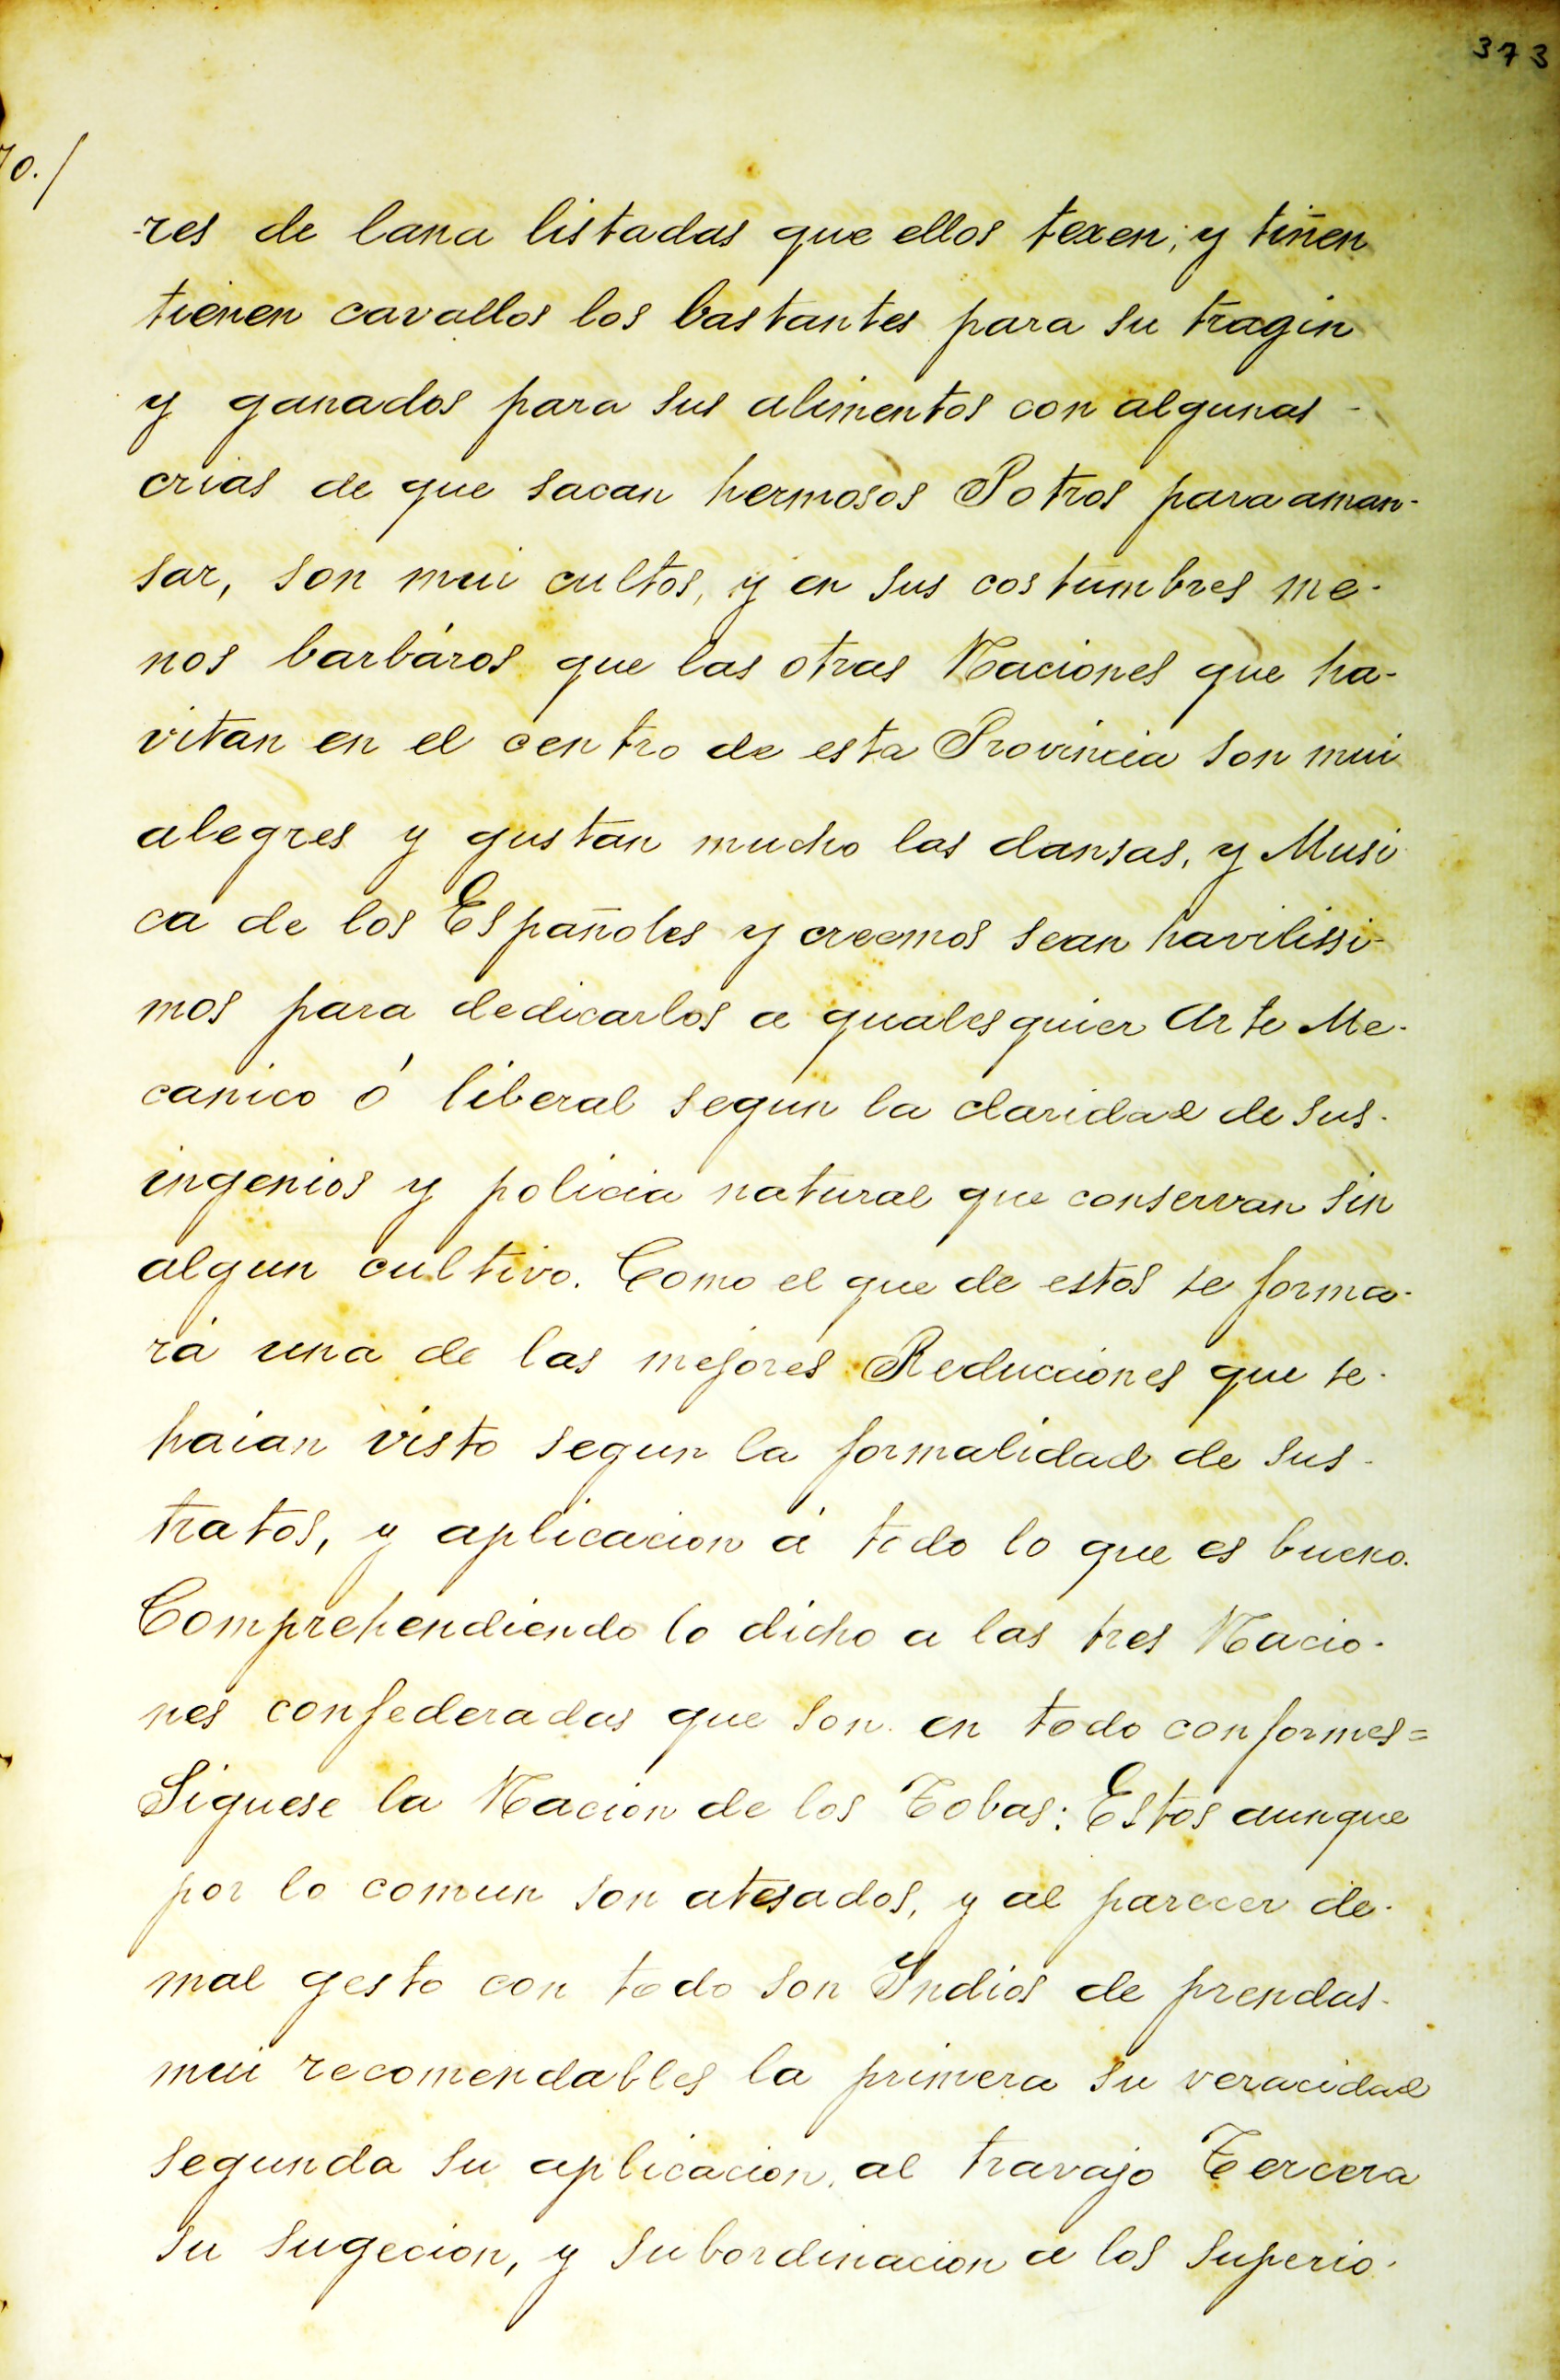 373
-res de lana listadas que ellos texen; y tiñen
tienen cavallos los bastantes para su tragin
y ganados para sus alimentos con algunas -
crias de que sacan hermosos Potros para aman-
sar, son mui cultos, y en sus costumbres me-
nos barbáros que las otras Naciones que ha-
vitan en el centro de esta Provincia son mui
alegres y gustan mucho las dansas, y Musi
ca de los Españoles y creemos sean havilissi-
mos para dedicarlos a qualesquier Arte Me-
canico ó liberal segun la claridad de sus-
ingenios y policia natural que conservan sin
algun cultivo. Como el que de estos se forma-
rá una de las mejores Reducciones que se-
haian visto segun la formalidad de sus-
tratos, y aplicacion á todo lo que es bueno.
Comprehendiendo lo dicho a las tres Nacio-
nes confederadas que son en todo conformes=
Siguese la Nacion de los Tobas: Estos aunque
por lo comun son atesados, y al parecer de-
mal gesto con todo son Indios de prendas-
mui recomendables la primera su veracidad
segunda su aplicacion, al travajo Tercera
su sugecion, y subordinacion a los Superio-